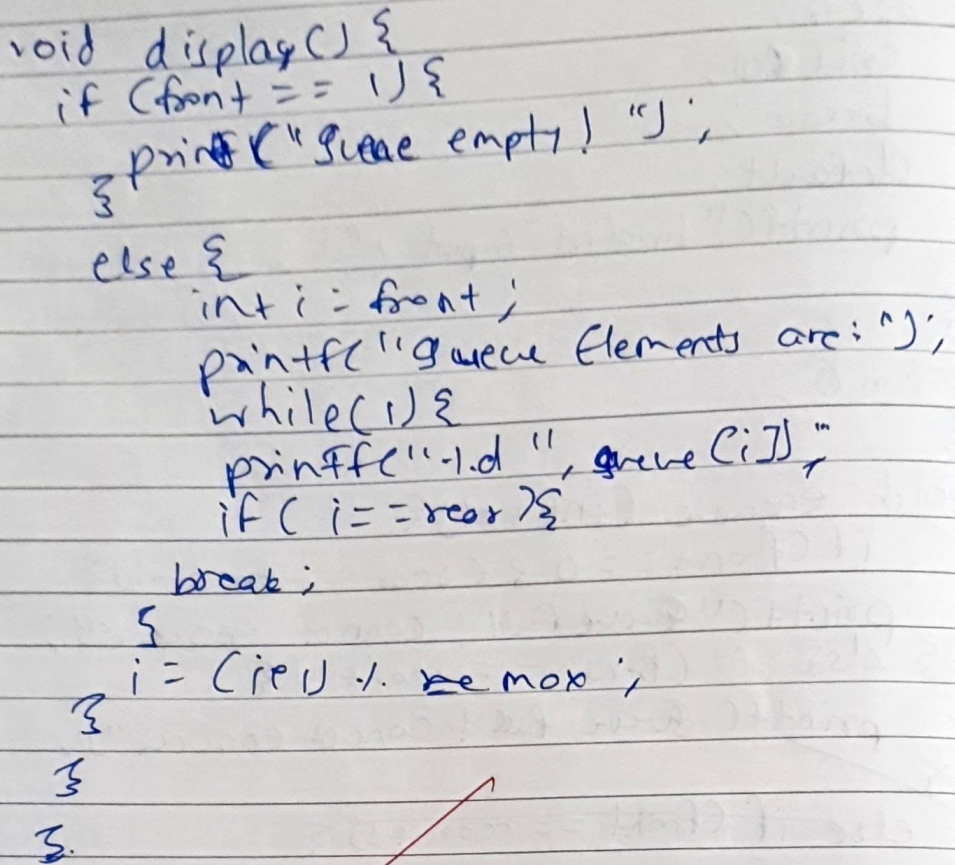 void display() {
if (front == 1) {
printf("queue empty! ");
}
else {
int i = front;
printf("queue Elements are: ");
while(1) {
printf("%d ", queue[i]);
if ( i == rear ) {
break;
{
i = (i+1) % max;
}
}
}.